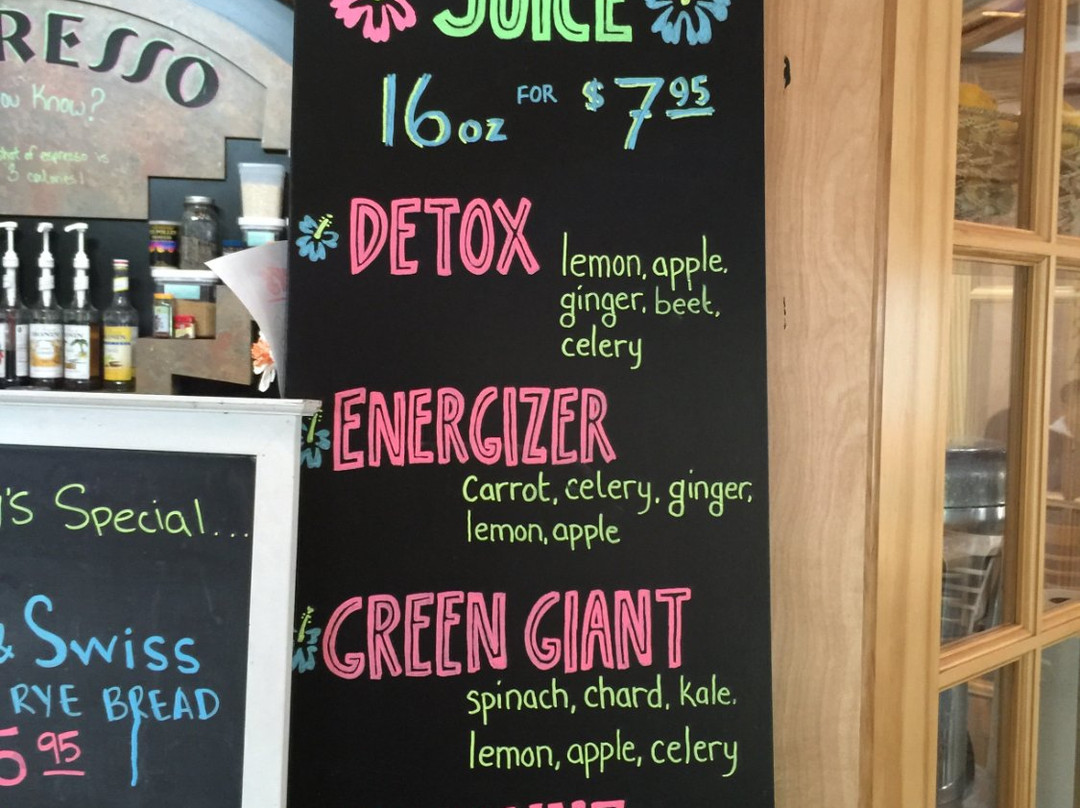 RESSO
ow Know?
shot of espresso is
3 calories!
JUICE
16 oz FOR $7.95
DETOX
lemon, apple,
ginger, beet,
celery
ENERGIZER
Carrot, celery, ginger,
lemon, apple
GREEN GIANT
spinach, chard, kale,
lemon, apple, celery
's Special...
& Swiss
RYE BREAD
5 95